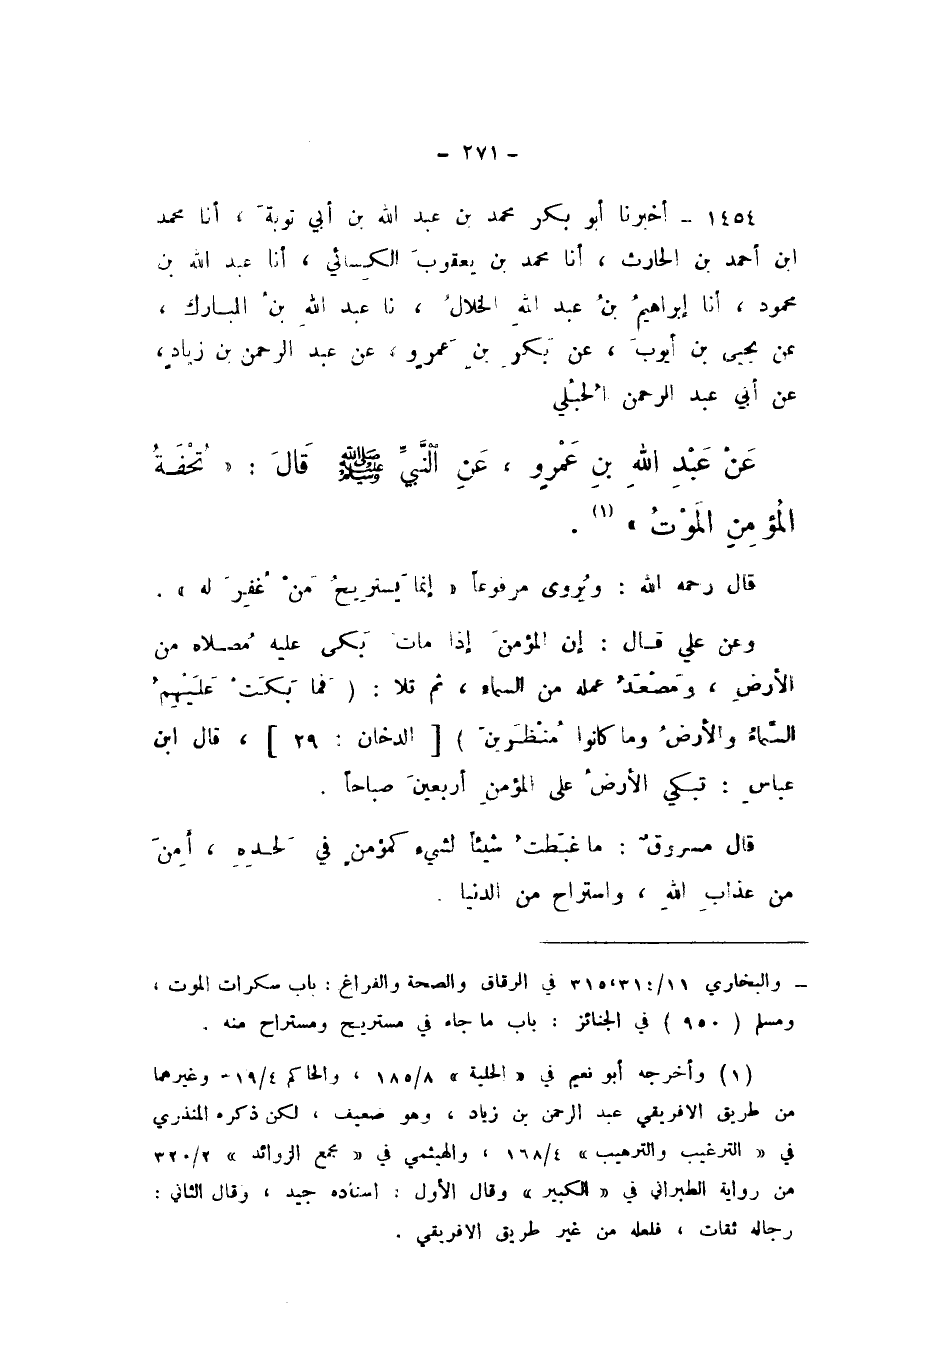 - ٢٧١ -
١٤٥٤ - أخبرنا أبو بكر محمد بن عبد الله بن أبي توبةَ ، أنا محمد
ابن أحمد بن الحارث ، أنا محمد بن يعقوبَ الكسائي ، أنا عبد الله بن
محمود ، أنا إبراهيمُ بنُ عبد اللهِ الخلالُ ، نا عبد اللهِ بنُ المبارك ،
عن يحيى بن أيوبَ ، عن بَكرِ بنِ عَمرٍو ، عن عبد الرحمن بن زيادٍ ،
عن أبي عبد الرحمن الحُبُلي
عَنْ عَبْدِ اللهِ بنِ عَمْرٍو ، عَنِ النَّبيِّ ﷺ قَالَ : « تُحْفَةُ
المُؤمِنِ المَوْتُ » (١) .
قال رحمه الله : ويُروى مرفوعاً « إنما يَستريحُ مَنْ غُفِرَ له » .
وعن علي قال : إن المؤمنَ إذا ماتَ بَكى عليه مُصلاه من
الأرضِ ، ومَصْعَدُ عمله من السماء ، ثم تلا : ( فَما بَكَتْ عَلَيْهِمُ
السَّماءُ والأرضُ وما كانوا مُنْظَرينَ ) [ الدخان : ٢٩ ] ، قال ابن
عباسٍ : تبكي الأرضُ على المؤمنِ أربعينَ صباحاً .
قال مسروقٌ : ما غبَطتُ شيئاً لشيء كمؤمنٍ في لَحدِهِ ، أَمِنَ
من عذابِ اللهِ ، واستراح من الدنيا .
- والبخاري ٣١٤/١١،٣١٥ في الرقاق والصحة والفراغ : باب سكرات الموت ،
ومسلم ( ٩٥٠ ) في الجنائز : باب ما جاء في مستريح ومستراح منه .
(١) وأخرجه أبو نعيم في « الحلية » ١٨٥/٨ ، والحاكم ٣١٩/٤ وغيرهما
من طريق الافريقي عبد الرحمن بن زياد ، وهو ضعيف ، لكن ذكره المنذري
في « الترغيب والترهيب » ١٦٨/٤ ، والهيثمي في « مجمع الزوائد » ٣٢٠/٢
من رواية الطبراني في « الكبير » وقال الأول : اسناده جيد ، وقال الثاني :
رجاله ثقات ، فلعله من غير طريق الافريقي .